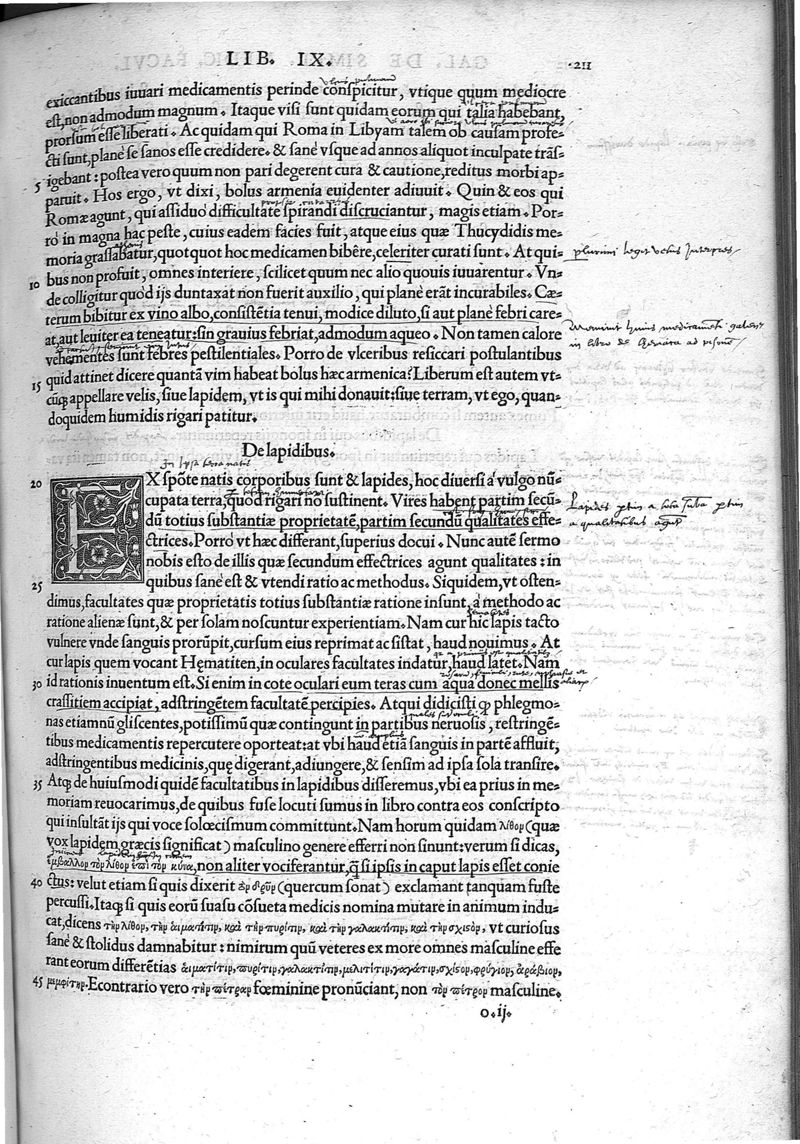 LIB. IX. 211
exiccantibus iuuari medicamentis perinde conspicitur, vtique quum mediocre
est, non admodum magnum. Itaque visi sunt quidam eorum qui talia habebant,
prorsum esse liberati. Ac quidam qui Roma in Libyam talem ob causam profe-
cti sunt, planè se sanos esse credidere. & sanè vsque ad annos aliquot inculpate trãs-
5 igebant: postea vero quum non pari degerent cura & cautione, reditus morbi ap-
paruit. Hos ergo, vt dixi, bolus armenia euidenter adiuuit. Quin & eos qui
Romæ agunt, qui assiduò difficultate spirandi discruciantur, magis etiam. Por-
rò in magna hac peste, cuius eadem facies fuit, atque eius quæ Thucydidis me-
moria grassabatur, quotquot hoc medicamen bibêre, celeriter curati sunt. At qui-
10 bus non profuit, omnes interiere, scilicet quum nec alio quouis iuuarentur. Vn-
de colligitur quòd ijs duntaxat non fuerit auxilio, qui planè erãt incurabiles. Cæ-
terum bibitur ex vino albo, consistẽtia tenui, modice diluto, si aut planè febri care-
at, aut leuiter ea teneatur: sin grauius febriat, admodum aqueo. Non tamen calore
vehementes sunt febres pestilentiales. Porro de vlceribus resiccari postulantibus
15 quid attinet dicere quantã vim habeat bolus hæc armenica? Liberum est autem vt-
cũq; appellare velis, siue lapidem, vt is qui mihi donauit: siue terram, vt ego, quan-
doquidem humidis rigari patitur.
De lapidibus.
20 EX spõte natis corporibus sunt & lapides, hoc diuersi à vulgo nũ-
cupata terra, quòd rigari nõ sustinent. Vires habent partim secũ-
dũ totius substantiæ proprietatẽ, partim secundũ qualitates effe-
ctrices. Porrò vt hæc differant, superius docui. Nunc autẽ sermo
nobis esto de illis quæ secundum effectrices agunt qualitates: in
25 quibus sanè est & vtendi ratio ac methodus. Siquidem, vt osten-
dimus, facultates quæ proprietatis totius substantiæ ratione insunt, à methodo ac
ratione alienæ sunt, & per solam noscuntur experientiam. Nam cur hic lapis tacto
vulnere vnde sanguis prorũpit, cursum eius reprimat ac sistat, haud nouimus. At
cur lapis quem vocant Hęmatiten, in oculares facultates indatur, haud latet. Nam
30 id rationis inuentum est. Si enim in cote oculari eum teras cum aqua donec mellis
crassitiem accipiat, adstringẽtem facultatẽ percipies. Atqui didicisti q; phlegmo-
nas etiamnũ gliscentes, potissimũ quæ contingunt in partibus neruosis, restringẽ-
tibus medicamentis repercutere oporteat: at vbi haud etiã sanguis in partẽ affluit,
adstringentibus medicinis, quę digerant, adiungere, & sensim ad ipsa sola transire.
35 Atq; de huiusmodi quidẽ facultatibus in lapidibus differemus, vbi ea prius in me-
moriam reuocarimus, de quibus fuse locuti sumus in libro contra eos conscripto
qui insultãt ijs qui voce solœcismum committunt. Nam horum quidam λίθορ (quæ
vox lapidem græcis significat) masculino genere efferri non sinunt: verum si dicas,
ἐμβάλλομ τὸμ λίθομ ἐπὶ τὸμ κύνα, non aliter vociferantur, q̃ si ipsis in caput lapis esset conie
40 ctus: velut etiam si quis dixerit δρῦμ (quercum sonat) exclamant tanquam fuste
percussi. Itaq; si quis eorũ suasu cõsueta medicis nomina mutare in animum indu-
cat, dicens τὴν λίθον, τὴν αἱματίτιν, καὶ τὴν πυρίτιν, καὶ τὴν γαλακτίτιν, καὶ τὴν σχιστὸν, vt curiosus
sanè & stolidus damnabitur: nimirum quũ veteres ex more omnes masculine effe
rant eorum differẽtias αἱματίτιν, πυρίτιν, γαλακτίτιν, μελιτίτιν, γαγάτιν, σχιστὸν, φρύγιον, ἀράβιον,
45 μεμφίτιν. Econtrario vero τὴν πέτραν fœminine pronũciant, non τὸν πέτρον masculine.
o.ij.
plurimi legit velus Interpres
Meminit huius medicamẽti galenus
in libro de theriaca ad pisonẽ
Lapides
a qualitatibus agunt